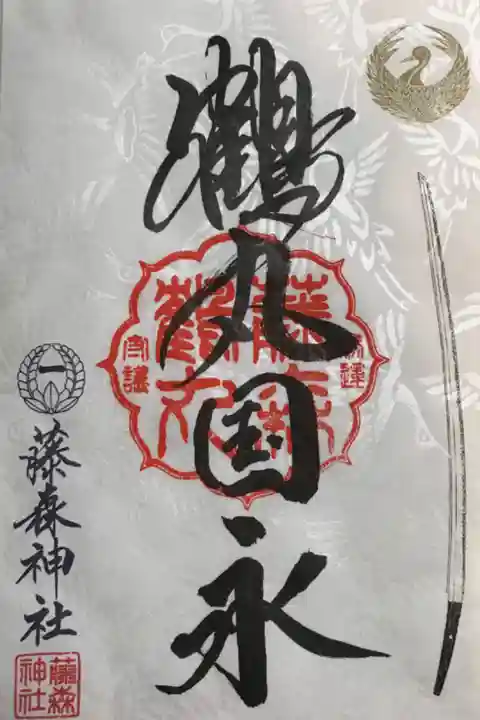 鶴丸国永
一
藤森神社
藤森
神社